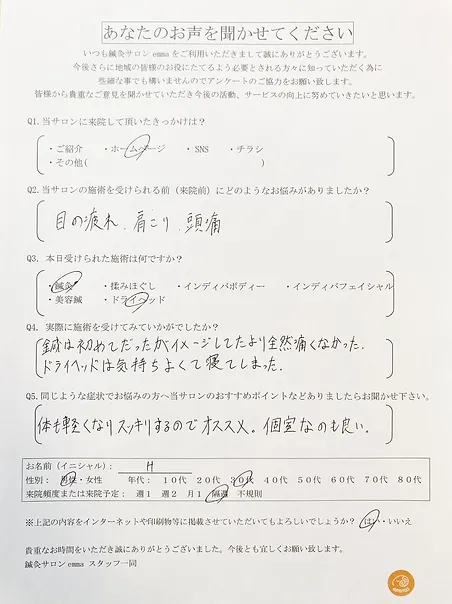 あなたのお声を聞かせてください
いつも鍼灸サロン emma をご利用いただきまして誠にありがとうございます。
今後さらに地域の皆様のお役にたてるよう必要とされる方々に知っていただく為に
些細な事でも構いませんのでアンケートのご協力をお願い致します。
皆様から貴重なご意見を聞かせていただき今後の活動、サービスの向上に努めていきたいと思います。
Q1.当サロンに来院して頂いたきっかけは？
・ご紹介 ・ホームページ ・SNS ・チラシ
・その他( )
Q2.当サロンの施術を受けられる前（来院前）にどのようなお悩みがありましたか？
目の疲れ、肩こり、頭痛
Q3. 本日受けられた施術は何ですか？
・鍼灸 ・揉みほぐし ・インディバボディー ・インディバフェイシャル
・美容鍼 ・ドライヘッド
Q4. 実際に施術を受けてみていかがでしたか？
鍼は初めてだったがイメージしてたより全然痛くなかった.
ドライヘッドは気持ちよくて寝てしました.
Q5.同じような症状でお悩みの方へ当サロンのおすすめポイントなどありましたらお聞かせ下さい。
体も軽くなりスッキリするのでオススメ。個室なのも良い.
お名前（イニシャル）： H
性別： 男性・女性 年代： 10代 20代 30代 40代 50代 60代 70代 80代
来院頻度または来院予定： 週1 週2 月1 隔週 不規則
※上記の内容をインターネットや印刷物等に掲載させていただいてもよろしいでしょうか？ はい・いいえ
貴重なお時間をいただき誠にありがとうございました。今後とも宜しくお願い致します。
鍼灸サロン emma スタッフ一同